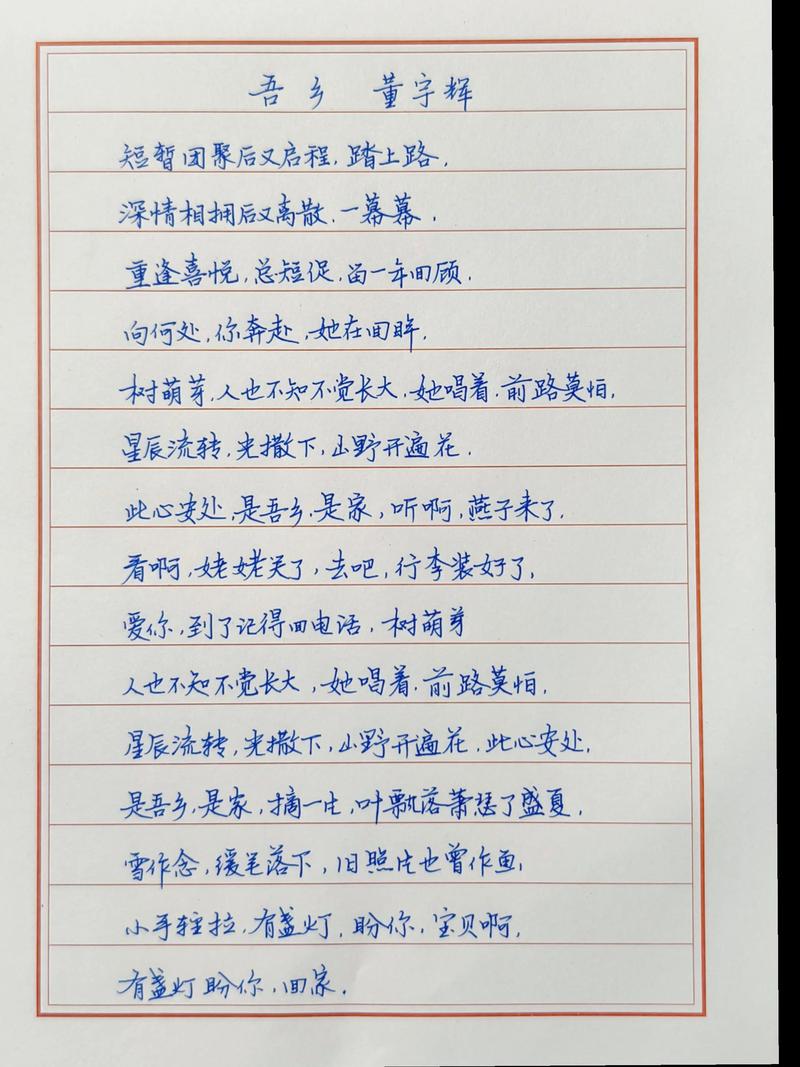 吾乡 董宇辉
短暂团聚后又启程,踏上路,
深情相拥后又离散,一幕幕,
重逢喜悦,总短促,留一年回顾,
向何处,你奔赴,她在回眸,
树萌芽,人也不知不觉长大,她唱着,前路莫怕,
星辰流转,光撒下,山野开遍花,
此心安处,是吾乡,是家,听啊,燕子来了,
看啊,姥姥笑了,去吧,行李装好了,
爱你,到了记得回电话,树萌芽
人也不知不觉长大,她唱着,前路莫怕,
星辰流转,光撒下,山野开遍花,此心安处,
是吾乡,是家,摘一片,叶飘落萧瑟了盛夏,
雪作念,缓笔落下,旧照片也曾作画,
小手轻拉,有盏灯,盼你,宝贝啊,
有盏灯盼你,回家,